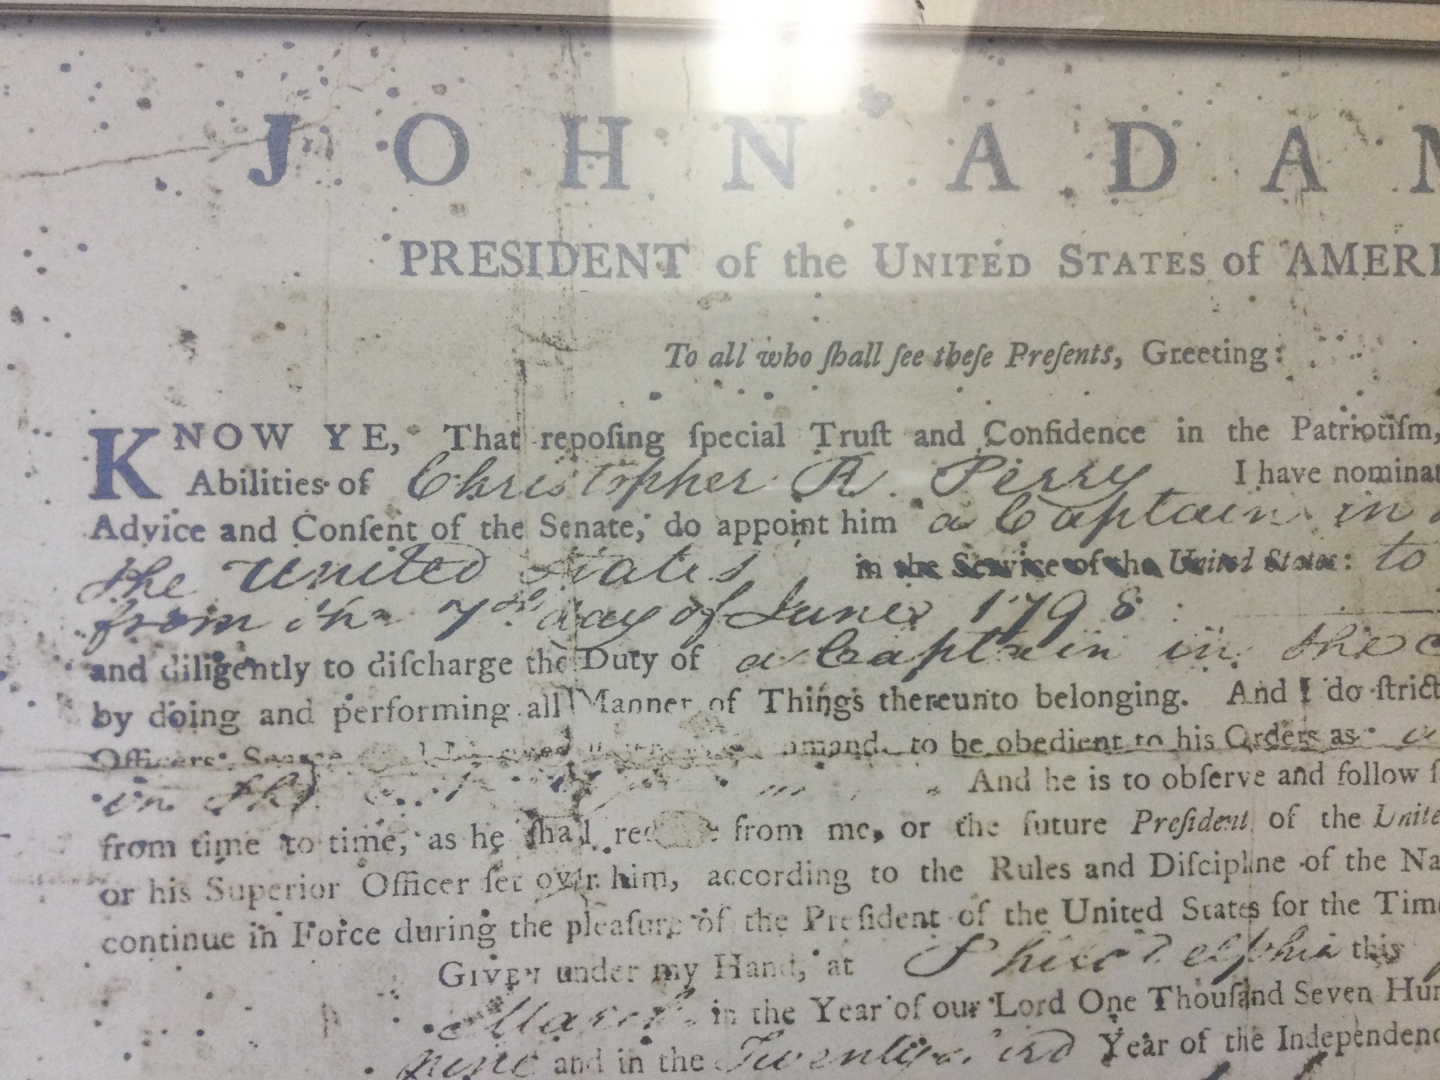 JOHN ADAM
PRESIDENT of the UNITED STATES of AMERI
To all who ſhall ſee theſe Preſents, Greeting:
KNOW YE, That repoſing ſpecial Truſt and Confidence in the Patriotiſm,
Abilities of Christopher R. Perry I have nominat
Advice and Conſent of the Senate, do appoint him a Captain in
the United States in the Service of the United States: to
from the 7th day of June 1798
and diligently to diſcharge the Duty of a Captain in the
by doing and performing all Manner of Things thereunto belonging. And I do ſtrict
Officers, to be obedient to his Orders as
in the And he is to obſerve and follow ſ
from time to time, as he ſhall from me, or the future Preſident of the Unite
or his Superior Officer ſet over him, according to the Rules and Diſcipline of the Na
continue in Force during the pleaſure of the Preſident of the United States for the Time
GIVEN under my Hand, at Philadelphia this
March in the Year of our Lord One Thouſand Seven Hun
nine and in the Twenty third Year of the Independenc